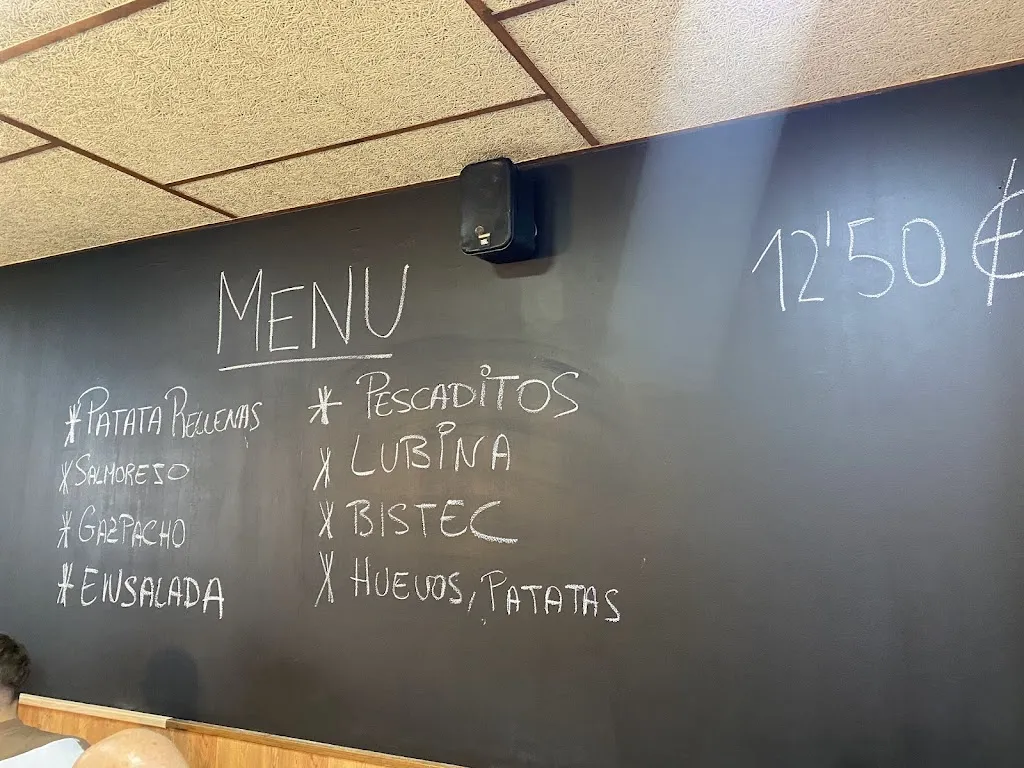 MENU
12'50 €
* PATATA RELLENAS
* SALMOREJO
* GAZPACHO
* ENSALADA
* PESCADITOS
* LUBINA
* BISTEC
* HUEVOS, PATATAS